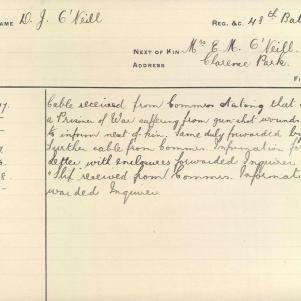 NAME D. J. O'Neill
REG. &C. 48th Bat
NEXT OF KIN Mrs E. M. O'Neill.
ADDRESS Clarence Park.
F
17. Cable received from Commrs stating that
a Prisoner of War suffering from gun-shot wounds
to inform next of kin. Same duly forwarded by
Further cable from Commrs. Information for
Letter with enclosures forwarded Inquirer
8. "Slip" received from Commrs. Informati
warded Inquirer